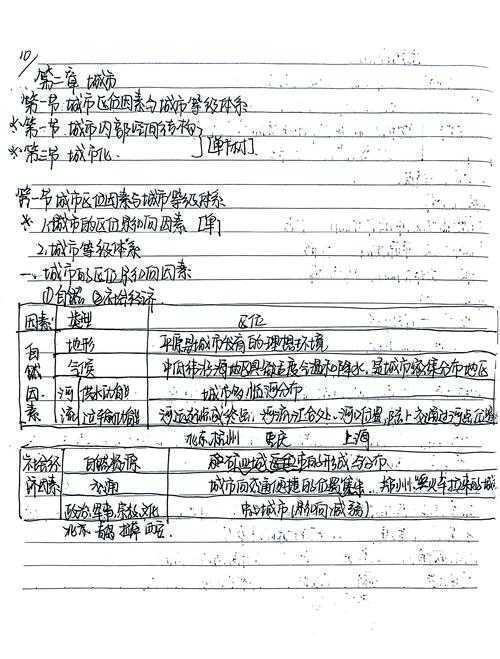 10/
第二章 城市
第一节 城市区位因素与城市等级体系
※第二节 城市内部空间结构
※第三节 城市化 [单树]
第一节城市区位因素与城市等级体系
※ 1.城市的区位影响因素 [单]
2.城市等级体系
一、城市的区位影响因素
①自然 ②社会经济
因素 类型 区位
自然因素 地形 平原是城市发育的理想环境
气候 中低纬沿海地区具有适度气温和降水,是城市密集分布地区
河流 供水功能 城市多临河分布
过 功能 河运的起点或终点,河流汇合处、河口位置,陆上交通过河点位置
北京、杭州 重庆 上海
社会经济因素 自然资源 矿业城市的形成与分布
交通 城市向交通便捷的位置集聚 郑州:火车拉来的城
政治、军事、宗教、文化 中心城市(影响减弱)
北京 拉萨 西安